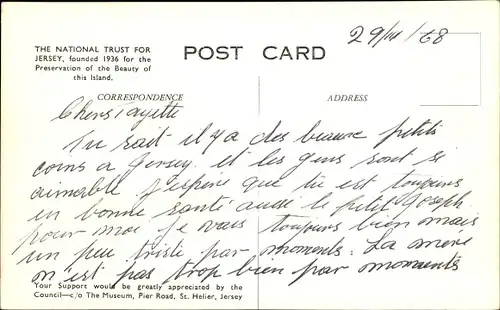 THE NATIONAL TRUST FOR
JERSEY, founded 1936 for the
Preservation of the Beauty of
this Island.
POST CARD
29/ /68
CORRESPONDENCE
ADDRESS
Chers Fayette
Tu sait il y a des beaux petits
coins a Jersey. et les gens sont si
aimerble j'espère que tu est toujours
en bonne santé aussi le petit Joseph.
pour moi je vais toujours bien mais
un peu triste par moments. La mère
n'est pas trop bien par moments
Your Support would be greatly appreciated by the
Council—c/o The Museum, Pier Road, St. Helier, Jersey